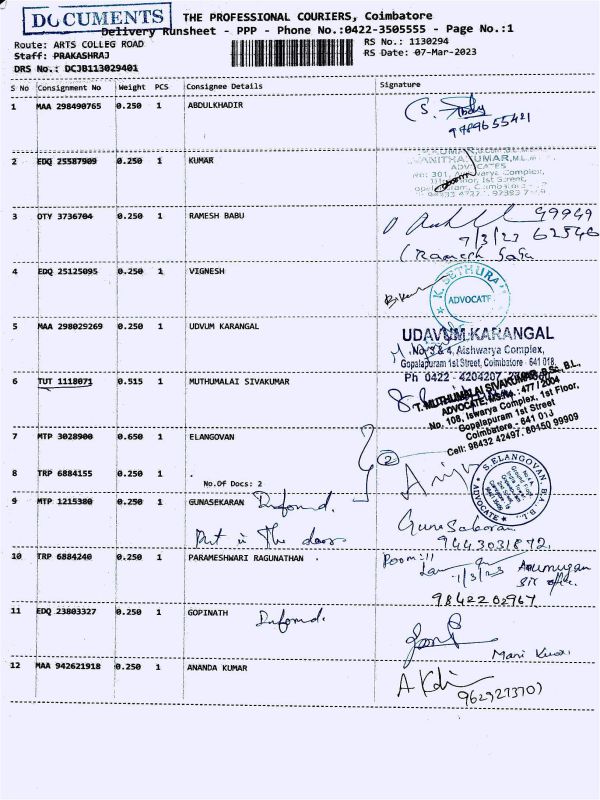 DOCUMENTS
THE PROFESSIONAL COURIERS, Coimbatore
Delivery Runsheet - PPP - Phone No.:0422-3505555 - Page No.:1
Route: ARTS COLLEG ROAD
RS No.: 1130294
Staff: PRAKASHRAJ
RS Date: 07-Mar-2023
DRS No.: DCJB113029401
S No Consignment No Weight PCS Consignee Details Signature
1 MAA 298490765 0.250 1 ABDULKHADIR
9789655421
2 EDQ 25587909 0.250 1 KUMAR
ADVOCATES
3 OTY 3736704 0.250 1 RAMESH BABU
99949
7/3/23 62546
(Ramesh Babu
4 EDQ 25125095 0.250 1 VIGNESH
K. SETHURA
ADVOCATE
5 MAA 298029269 0.250 1 UDVUM KARANGAL
UDAVUM KARANGAL
No. 3 & 4, Aishwarya Complex,
Gopalapuram 1st Street, Coimbatore - 641 018.
Ph 0422 - 4204207
6 TUT 1118071 0.515 1 MUTHUMALAI SIVAKUMAR
T. MUTHUMALAI SIVAKUMAR, B.Sc., B.L.,
ADVOCATE, MS.No : 477 / 2004
No. 108, Iswarya Complex, 1st Floor,
Gopalapuram 1st Street
Coimbatore - 641 018
Cell: 98432 42497, 60150 99909
7 MTP 3028900 0.650 1 ELANGOVAN
2
8 TRP 6884155 0.250 1
No.Of Docs: 2
S. ELANGOVAN, B.A., B.L.,
ADVOCATE
9 MTP 1215380 0.250 1 GUNASEKARAN Informed.
Put in The door
Gunasekaran
9443031872.
10 TRP 6884240 0.250 1 PARAMESHWARI RAGUNATHAN
Room:11
1/3/23 Arumugan
9842202967
11 EDQ 23803327 0.250 1 GOPINATH Informed.
Mani
12 MAA 942621918 0.250 1 ANANDA KUMAR